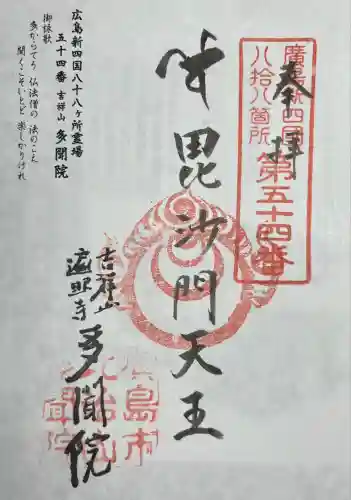 奉拝
廣島新四国
八拾八箇所
第五十四番
毘沙門天王
吉祥山
遍照寺
多聞院
広島新四国八十八ヶ所霊場
五十四番 吉祥山 多聞院
御詠歌
多からてう 仏法僧の 法のこえ
聞くこそいとど 楽しかりけれ
広島市